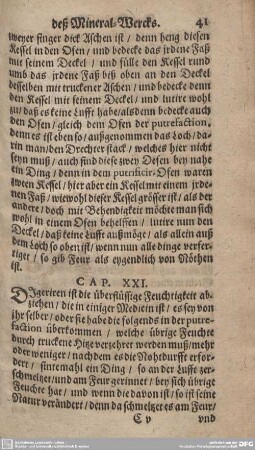 deß Mineral-Wercks. 41
zweyer finger dick Aschen ist / denn heng diesen
Kessel in den Ofen / und bedecke das jrdene Faß
mit seinem Deckel / und fülle den Kessel rund
umb das jrdene Faß biß oben an den Deckel
desselben mit truckener Aschen / und bedecke denn
den Kessel mit seinem Deckel / und lutire wohl
zu / daß es keine Lufft habe / alsdenn bedecke auch
den Ofen / gleich dem Ofen der putrefaction,
denn es ist eben so / außgenommen das Loch / da-
rin man / den Drechter stack / welches hier nicht
seyn muß / auch sind diese zwey Oefen bey nahe
ein Ding / denn in dem putrificir-Ofen waren
zween Kessel / hier aber ein Kessel mit einem jrde-
nen Faß / wiewohl dieser Kessel grösser ist / als der
andere / doch mit Behendigkeit möchte man sich
wohl in einem Ofen behelffen / lutire nun den
Deckel / daß keine Lufft außmöge / als allein auß
dem Loch so oben ist / wenn nun alle dinge verfer-
tiget / so gib Feur als eygendlich von Nöthen
ist.
CAP. XXI.
DIgeriren ist die überflüssige Feuchtigkeit ab-
ziehen / die in einiger Medicin ist / es sey von
jhr selber / oder sie habe die folgends in der putre-
faction überkommen / welche übrige Feuchte
durch truckene Hitze verzehret werden muß / mehr
oder weniger / nachdem es die Nohtdurfft erfor-
dert / sintemahl ein Ding / so an der Lufft zer-
schmeltzet / und am Feur gerinnet / bey sich übrige
Feuchte hat / und wenn die davon ist / so ist seine
Natur verändert / denn da schmeltzet es am Feur /
C v und